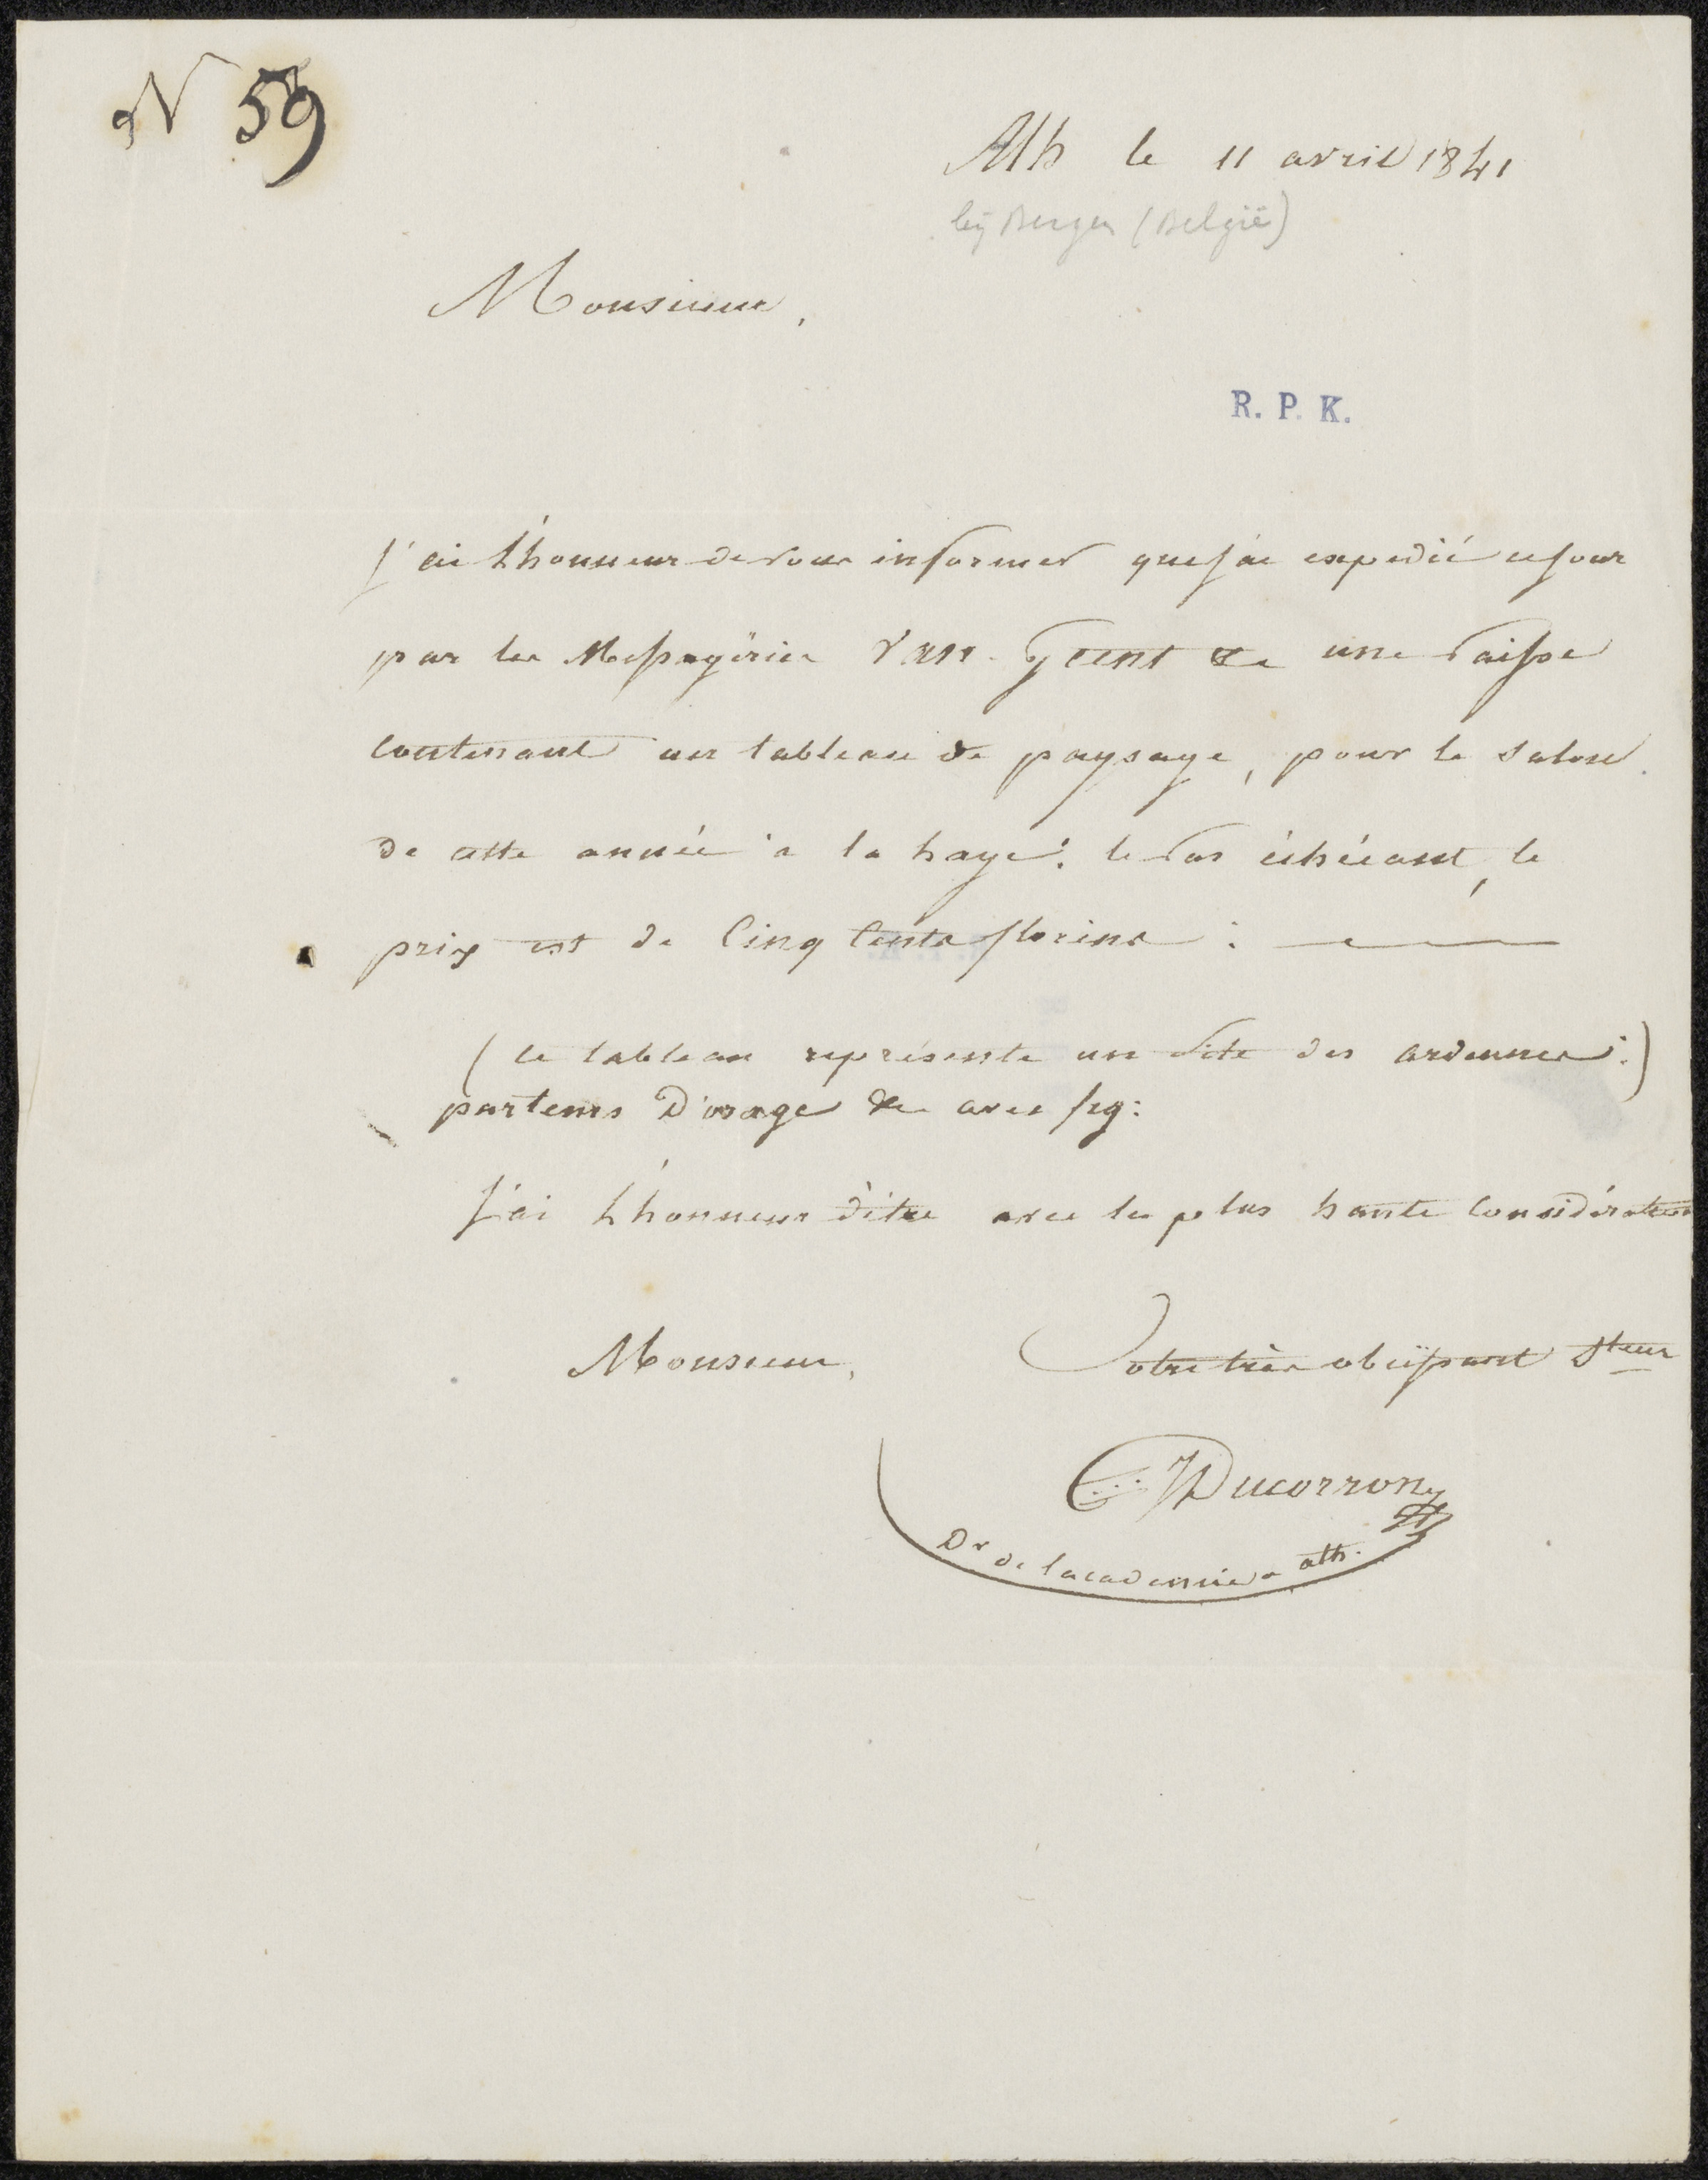 N 59
Ath le 11 avril 1841
bij Bergen (België)
Monsieur,
R. P. K.
J'ai l'honneur de vous informer que j'ai expedié ce jour
par les Messageries Van Gent & une Caisse
contenant un tableau de paysage, pour le Salon
de cette année à la haye: le Cas échéant, le
prix est de Cinq Cents florins :
(le tableau représente un Site des ardennes:)
par tems D'orage & avec fig:
J'ai l'honneur d'être avec la plus haute Considération
Monsieur,
Votre très obéissant Steur
Ducorron
Dr de lacademie a ath.